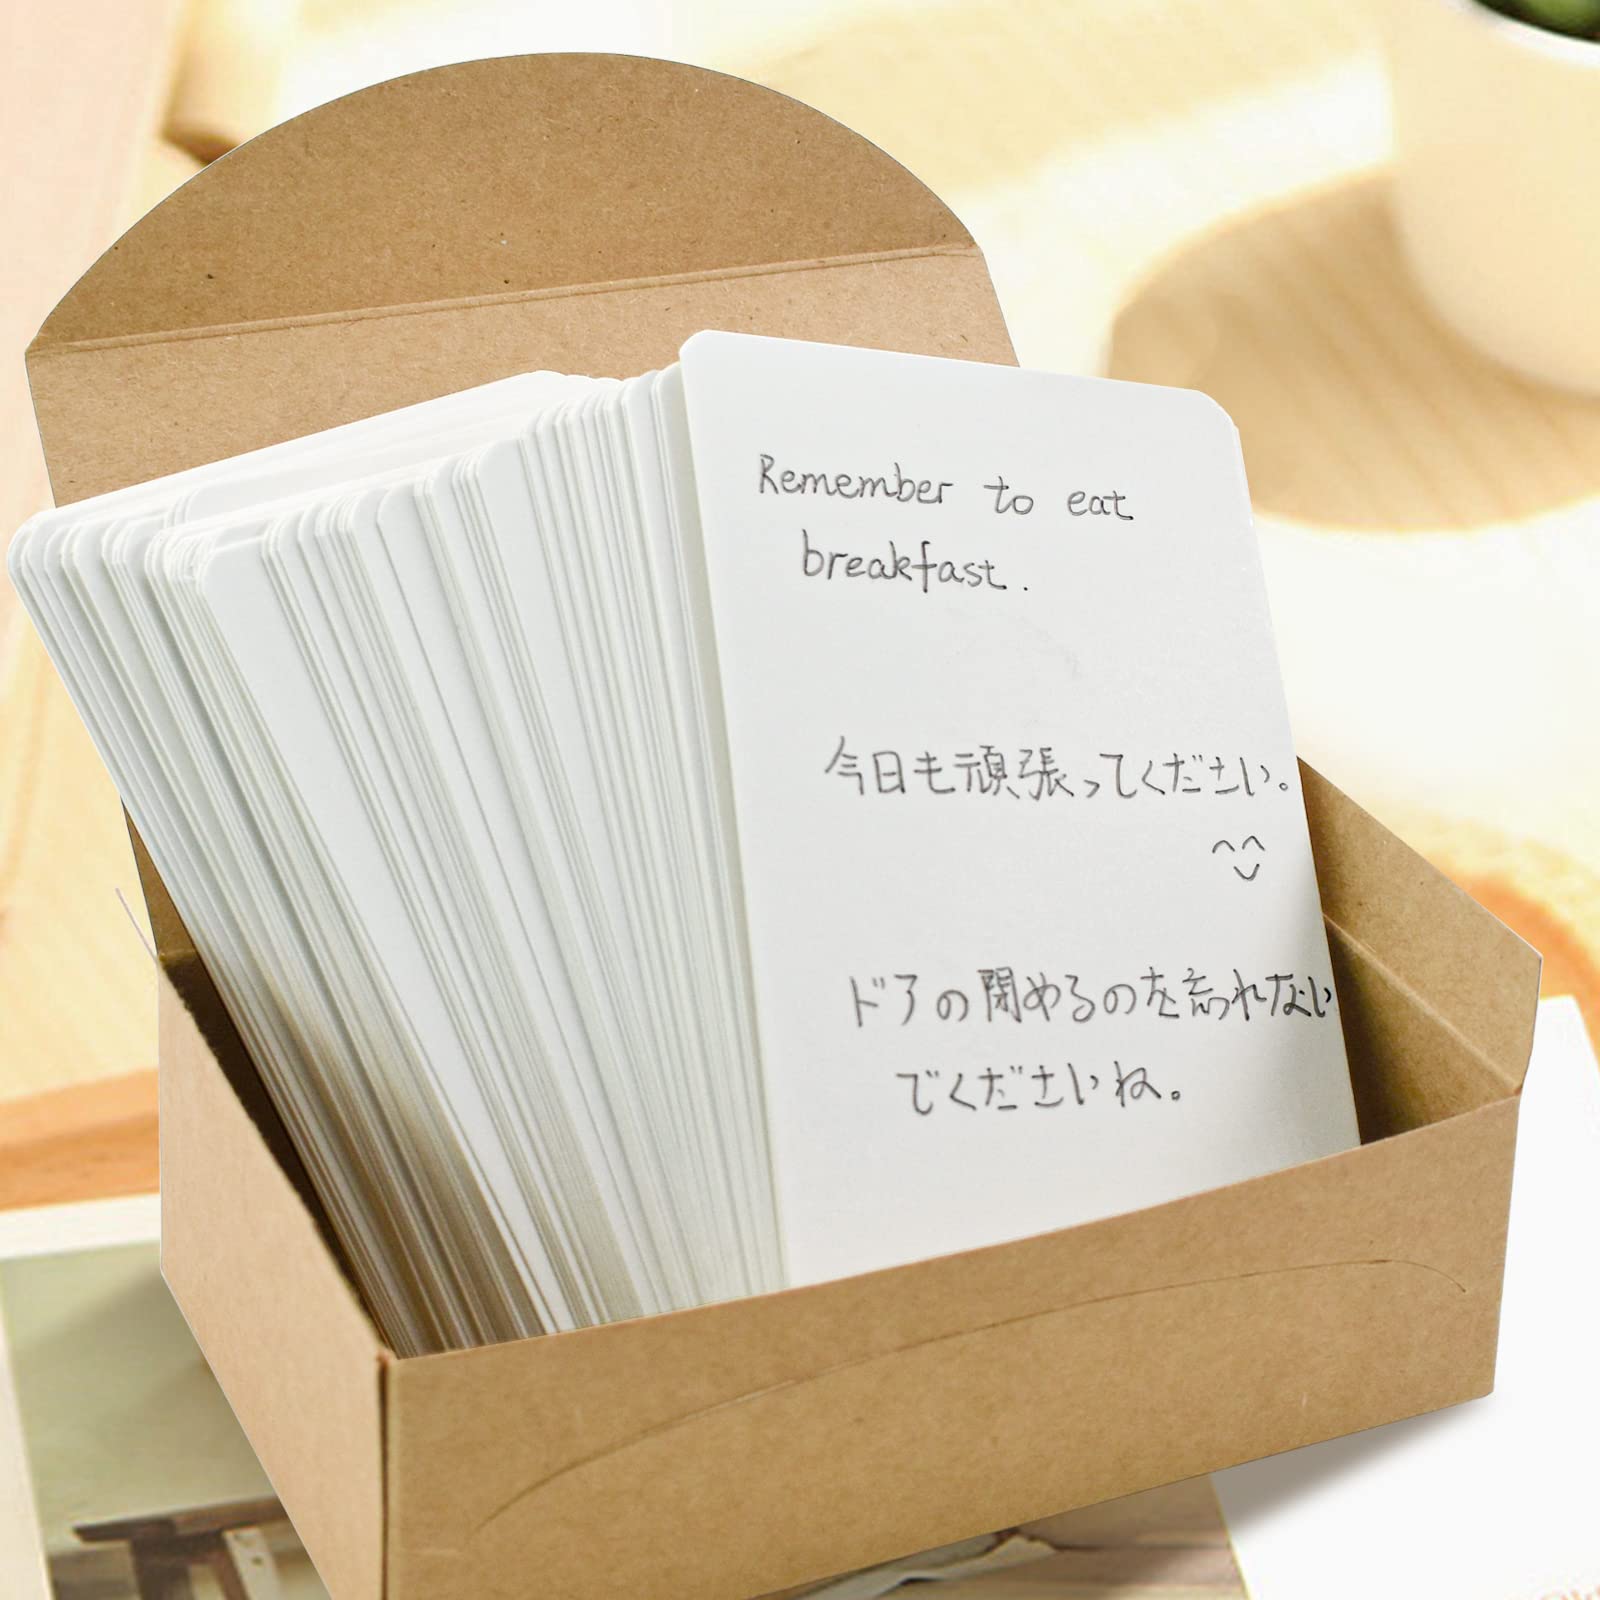 Remember to eat
breakfast.
今日も頑張ってください。
ドアの閉めるのを忘れない
でくださいね。